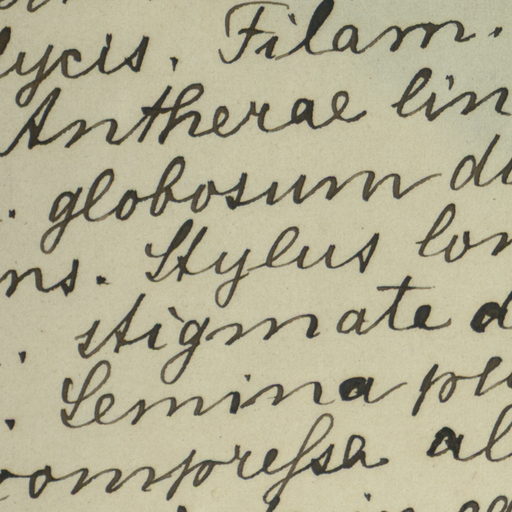 lycis. Filam.
Antherae lin
. globosum di
ns. Stylus lon
. stigmate d
. Semina pl
compreſsa al